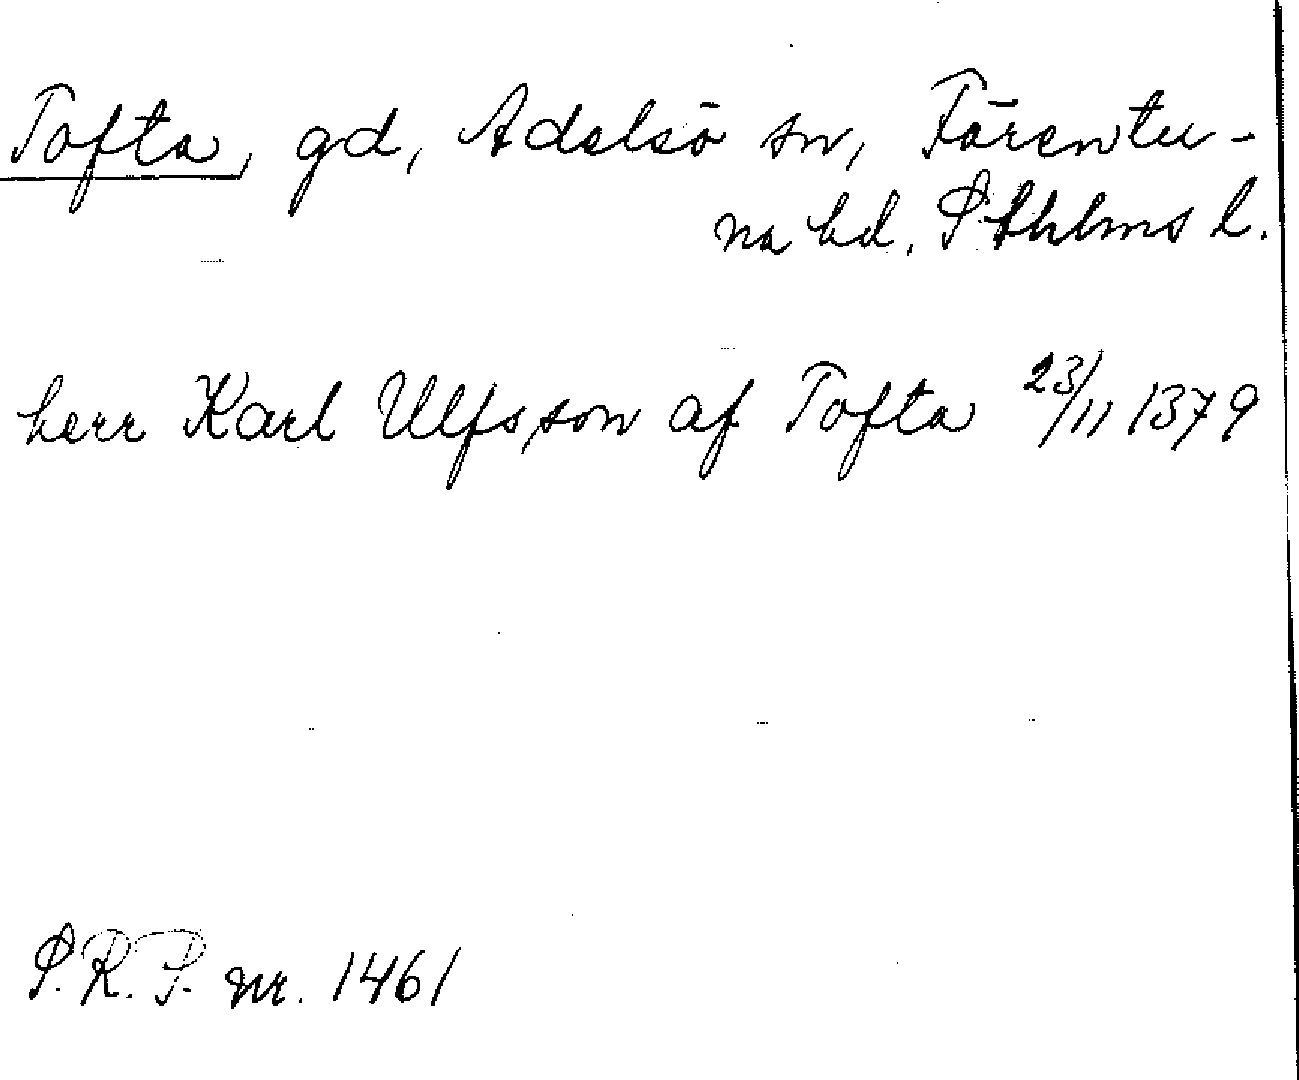 Tofta, gd, Adelsö sn, Färentu-
na hd, Sthlms l.
herr Karl Ulfsson af Tofta 23/11 1379
S.R.P. nr. 1461